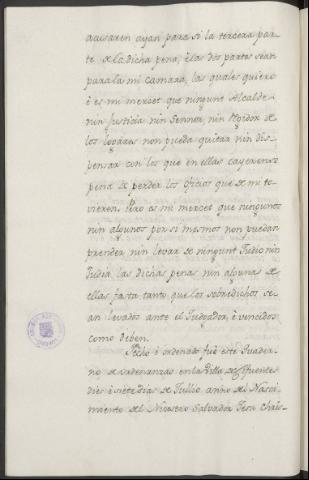 acusaren ayan para sí la tercera par-
te de la dicha pena, è las dos partes sean
para la mi camara, las quales quiero
è es mi mercet que ningunt Alcalde
nin Justicia nin Sennor, nin Rexidor de
los logares non pueda quitar nin dis-
pensar con los que en ellas cayeren so
pena de perder los oficios que de mi to-
vieren. Pero es mi mercet que ningunos
nin algunos por si mesmos non puedan
prender nin levar de ningunt Judio nin
Judia las dichas penas nin alguna de
ellas fasta tanto que los sobredichos se-
an levados ante el Judgador, è vencidos
como deben.
Fecho è ordenado fuè este Quader-
no de ordenanzas en la Villa de Cifuentes
diès è siete dias de Jullio anno del Nasci-
miento del Nuestro Salvador Jesu Chris-